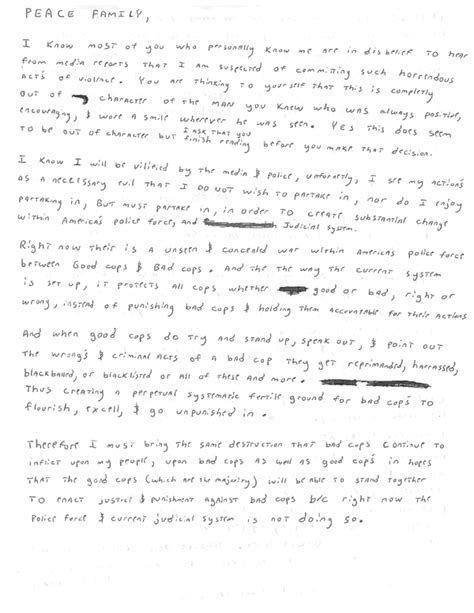 PEACE FAMILY,
I know most of you who personally know me are in disbelief to hear
from media reports that I am suspected of committing such horrendous
acts of violence. You are thinking to yourself that this is completly
out of character of the man you knew who was always positive,
encouraging, & wore a smile wherever he was seen. Yes this does seem
to be out of character but I ask that you finish reading before you make that decision.
I know I will be vilified by the media & police, unfortnetly, I see my action's
as a necessary evil that I do not wish to partake in, nor do I enjoy
partaking in, But must partake in, in order to create substantial change
within America's police force, and Judicial system.
Right now their is a unseen & concealed war within Americas police force
between Good cops & Bad cops. And the the way the current system
is set up, it protects all cops whether good or bad, right or
wrong, instead of punishing bad cops & holding them accountable for their actions
And when good cops do try and stand up, speak out, & point out
the wrong's & criminal acts of a bad cop they get reprimanded, harrassed,
blackballed, or blacklisted or all of these and more.
Thus creating a perpetual systematic fertile ground for bad cop's to
flourish, excell, & go unpunished in.
Therefore I must bring the same destruction that bad cops continue to
inflict upon my people, upon bad cops as well as good cops in hopes
that the good cops (which are the majority) will be able to stand together
to enact justice & punishment against bad cops b/c right now the
police force & current judicial system is not doing so.